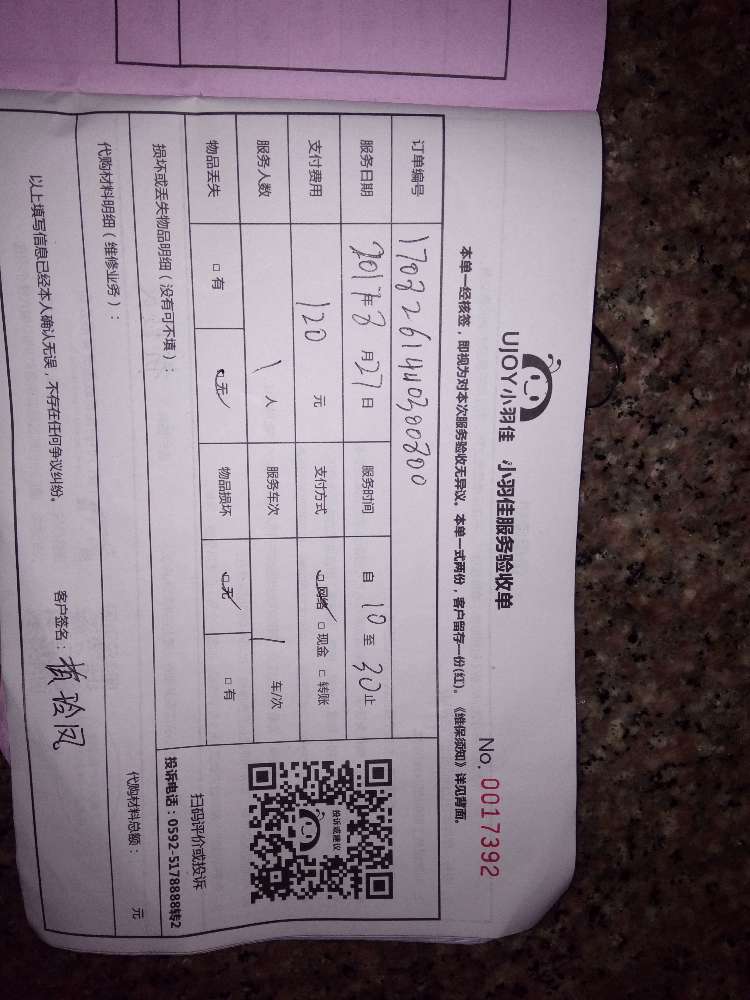 UJOY小羽佳 小羽佳服务验收单
No. 0017392
本单一经核签，即视为对本次服务验收无异议。本单一式两份，客户留存一份(红)。《维保须知》详见背面。
订单编号 1708261440300200
服务日期 2017年8月27日 服务时间 自 10 至 30 止
支付费用 120 元 支付方式 □网络 □现金 □转账
服务人数 1 人 服务车次 1 车/次
物品丢失 □有 □无 物品损坏 □无 □有
投诉或建议
扫码评价或投诉
投诉电话：0592-5178888转2
损坏或丢失物品明细（没有可不填）：
代购材料明细（维修业务）： 代购材料总额： 元
以上填写信息已经本人确认无误，不存在任何争议纠纷。 客户签名：